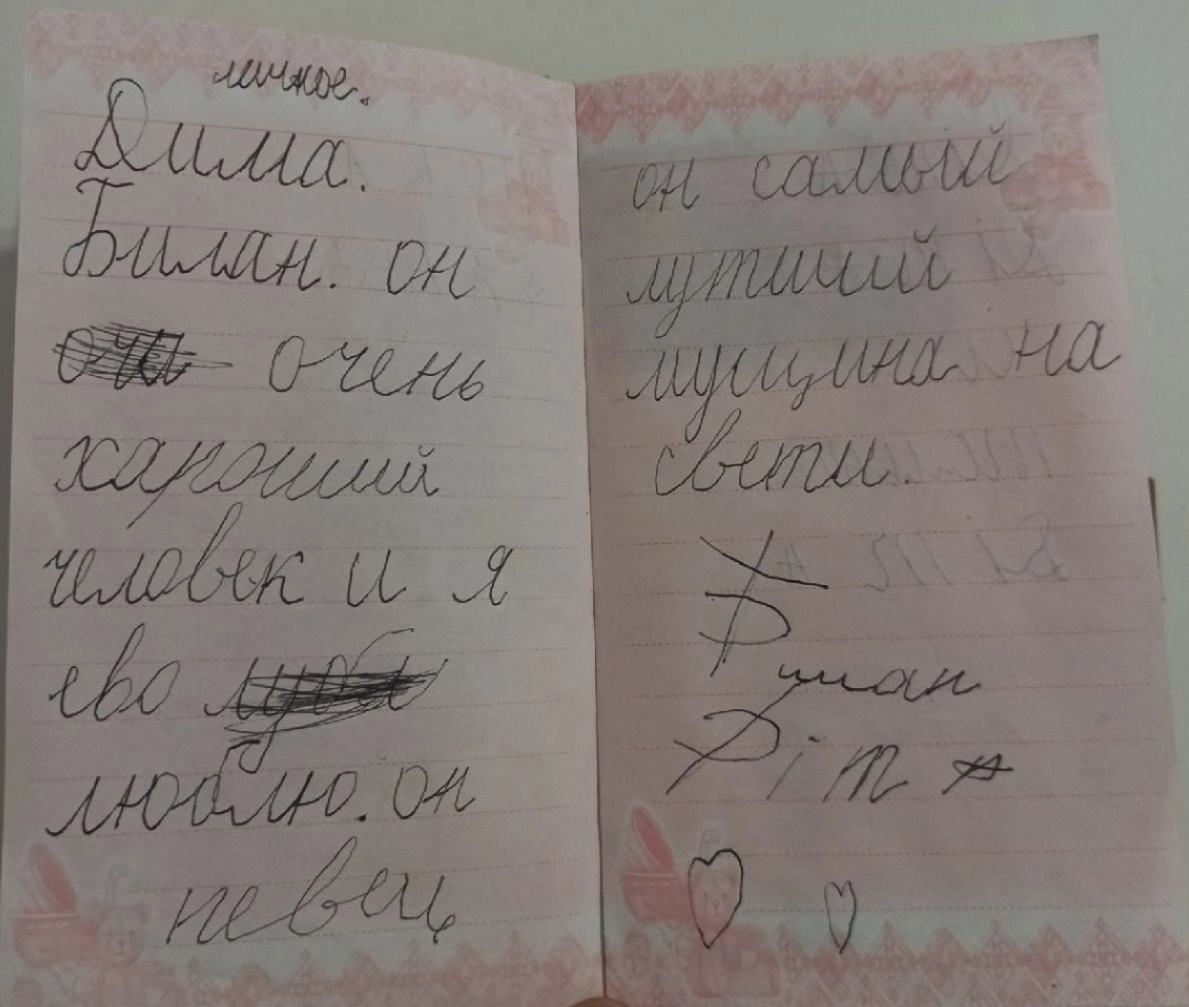 личное.
Дима.
Билан. он
очень
хароший
человек и я
ево
люблю. он
певец
он самый
лутший
мущина на
свети.
Билан
Dim